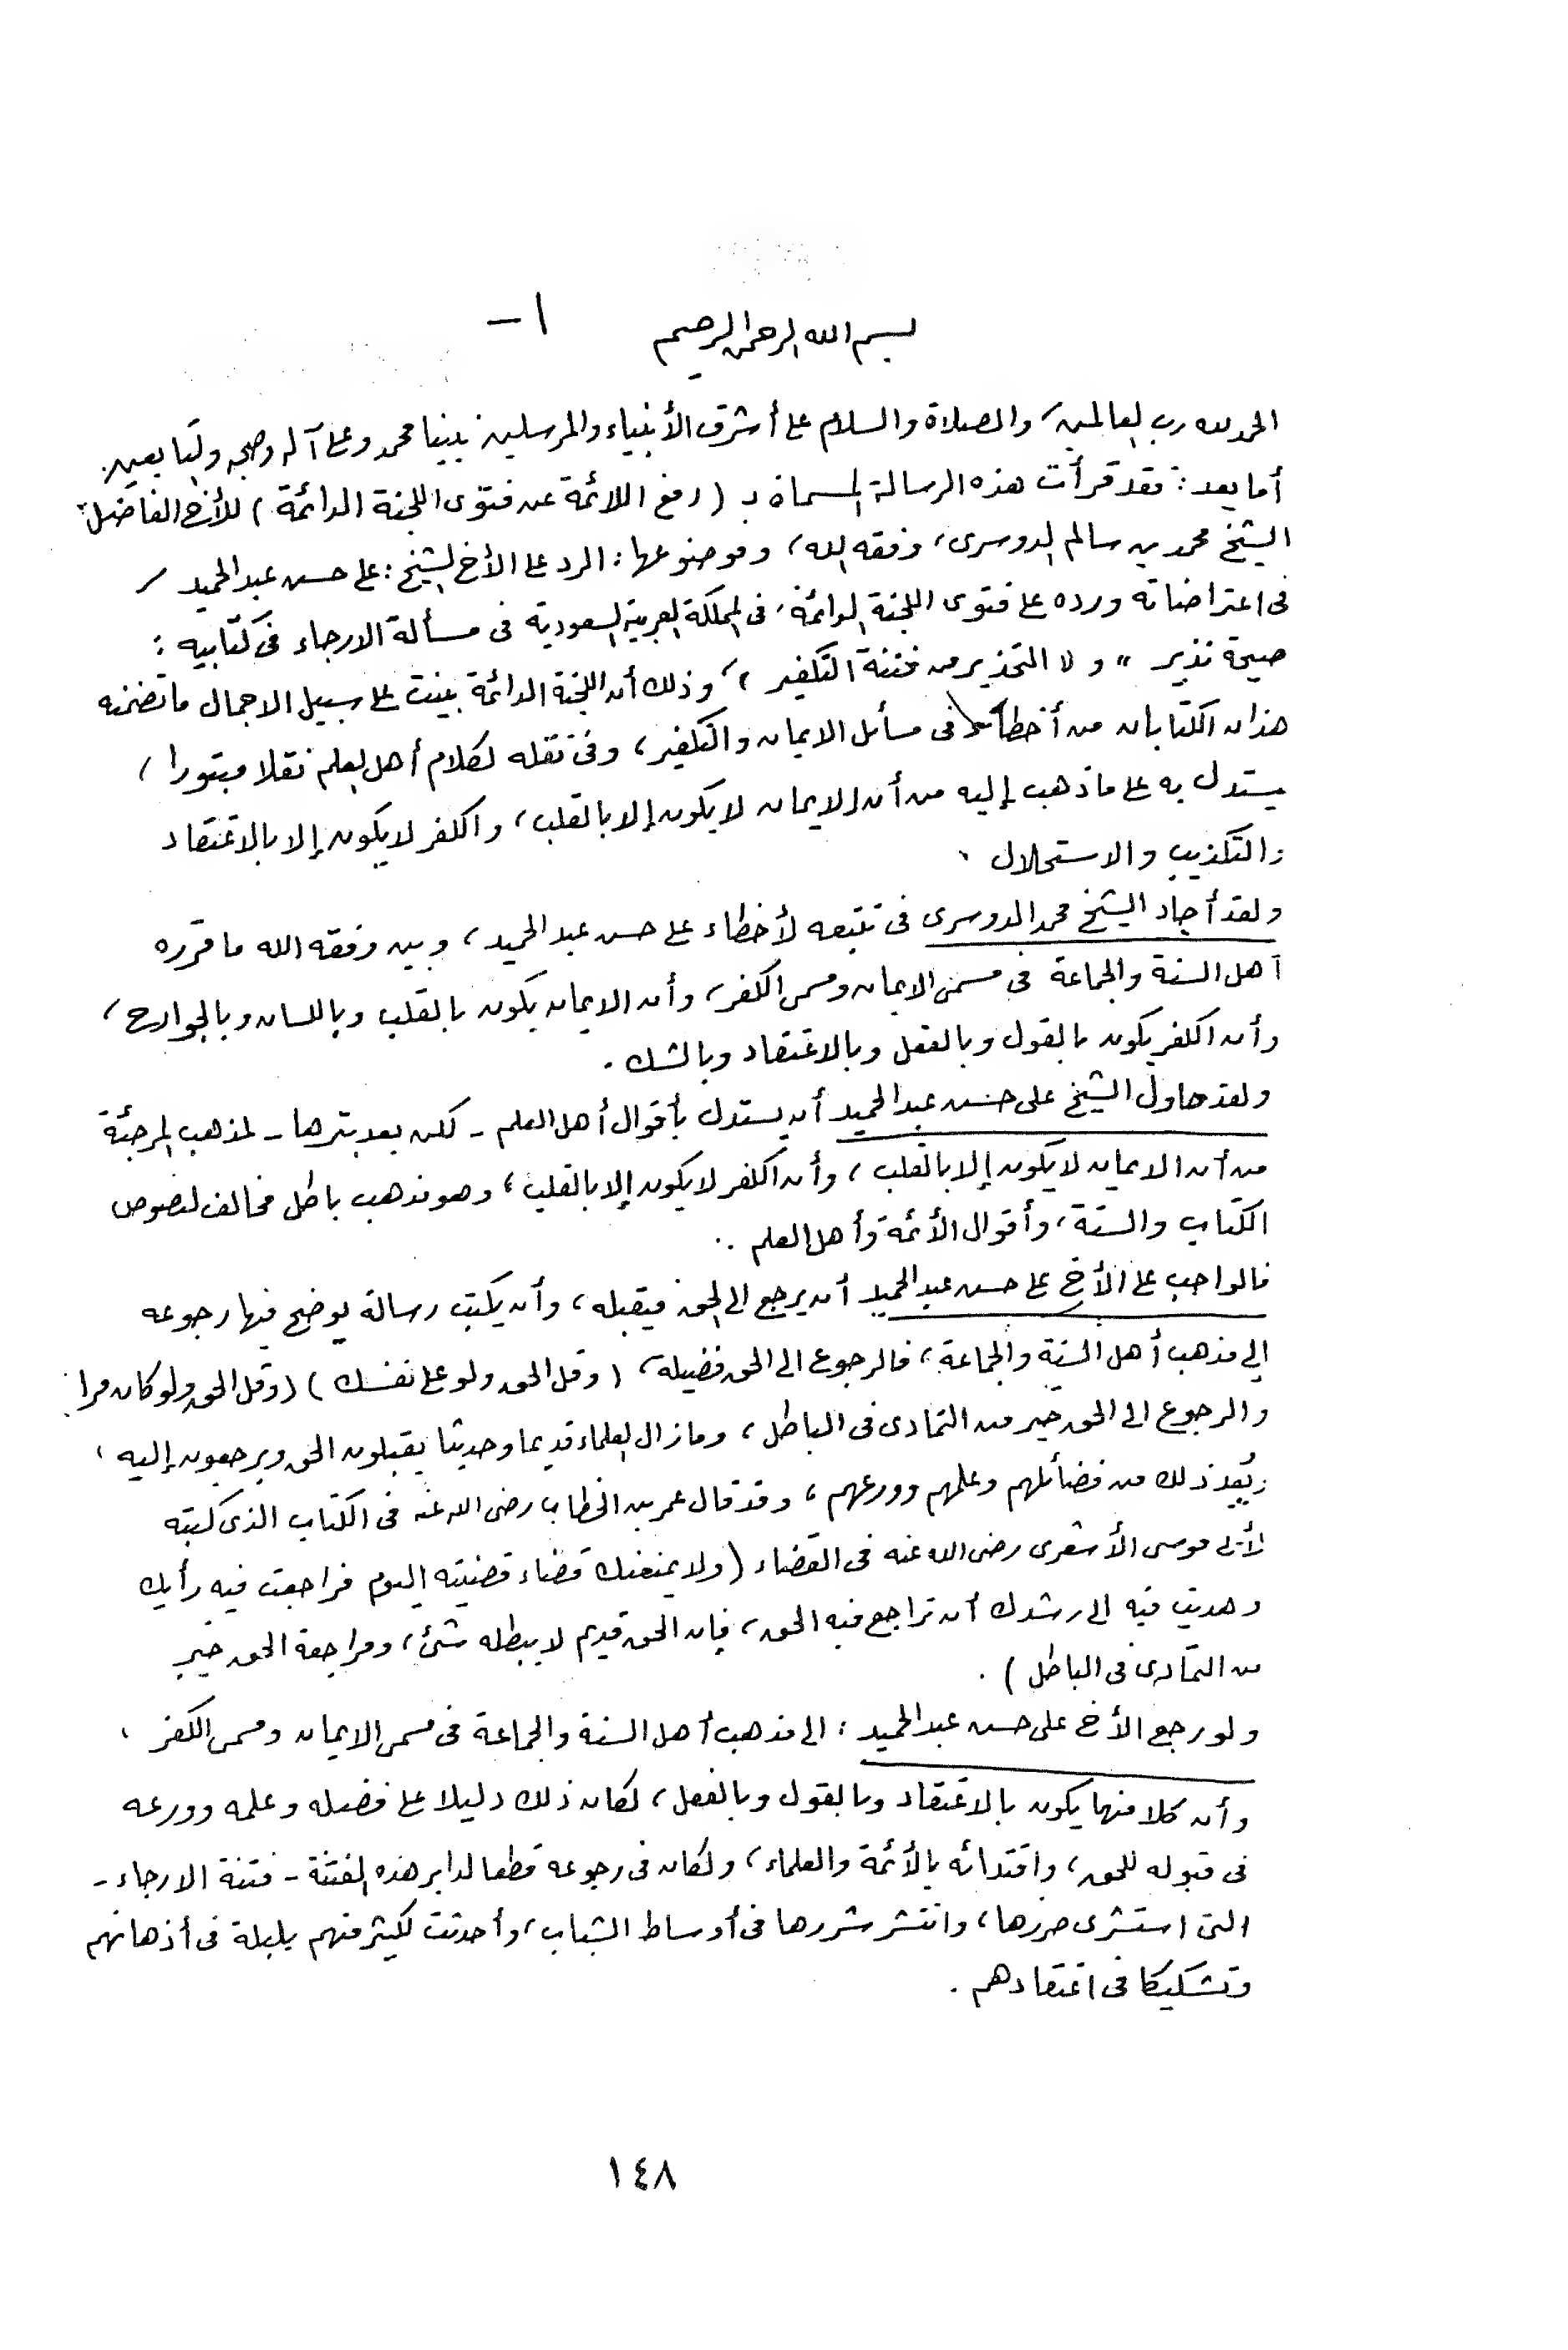 بسم الله الرحمن الرحيم
١-
الحمد لله رب العالمين، والصلاة والسلام على أشرف الأنبياء والمرسلين نبينا محمد وعلى آله وصحبه والتابعين.
أما بعد: فقد قرأت هذه الرسالة المسماة بـ (رفع اللائمة عن فتوى اللجنة الدائمة) للأخ الفاضل:
الشيخ محمد بن سالم الدوسرى، وفقه الله، وموضوعها: الرد على الأخ الشيخ: على حسن عبد الحميد /
فى اعتراضاته ورده على فتوى اللجنة الدائمة، فى المملكة العربية السعودية فى مسألة الارجاء فى كتابيه:
صيحة نذير " و " التحذير من فتنة التكفير "، وذلك أن اللجنة الدائمة بينت على سبيل الاجمال ما تضمنه
هذان الكتابان من أخطاء فى مسائل الايمان والتكفير، وفى نقله لكلام أهل العلم نقلا مبتورا،
يستدل به على ما ذهب إليه من أن الايمان لا يكون إلا بالقلب، والكفر لا يكون إلا بالاعتقاد
والتكذيب والاستحلال.
ولقد أجاد الشيخ محمد الدوسرى فى تتبعه لأخطاء على حسن عبد الحميد، وبين وفقه الله ما قرره
أهل السنة والجماعة فى مسمى الايمان ومسمى الكفر، وأن الايمان يكون بالقلب وباللسان وبالجوارح،
وأن الكفر يكون بالقول وبالفعل وبالاعتقاد وبالشك.
ولقد حاول الشيخ على حسن عبد الحميد أن يستدل بأقوال أهل العلم - لكن بعد بترها - لمذهب المرجئة
من أن الايمان لا يكون إلا بالقلب، وأن الكفر لا يكون إلا بالقلب، وهو مذهب باطل مخالف لنصوص
الكتاب والسنة، وأقوال الأئمة وأهل العلم ..
فالواجب على الأخ على حسن عبد الحميد أن يرجع الى الحق فيقبله، وأن يكتب رسالة يوضح فيها رجوعه
إلى مذهب أهل السنة والجماعة، فالرجوع الى الحق فضيلة، (وقل الحق ولو على نفسك) (وقل الحق ولو كان مرا
والرجوع الى الحق خير من التمادى فى الباطل، وما زال العلماء قديما وحديثا يقبلون الحق ويرجعون إليه،
ويُعد ذلك من فضائلهم وعلمهم وورعهم، وقد قال عمر بن الخطاب رضى الله عنه فى الكتاب الذى كتبه
لأبى موسى الأشعرى رضى الله عنه فى القضاء (ولا يمنعنك قضاء قضيته اليوم فراجعت فيه رأيك
وهديت فيه الى رشدك أن تراجع فيه الحق، فإن الحق قديم لا يبطله شئ، ومراجعة الحق خير
من التمادى فى الباطل).
ولو رجع الأخ على حسن عبد الحميد: الى مذهب أهل السنة والجماعة فى مسمى الايمان ومسمى الكفر،
وأن كلا منهما يكون بالاعتقاد وبالقول وبالفعل، لكان ذلك دليلا على فضله وعلمه وورعه
فى قبوله للحق، واقتدائه بالأئمة والعلماء، ولكان فى رجوعه قطعا لدابر هذه الفتنة - فتنة الارجاء -
التى استشرى ضررها، وانتشر شررها فى أوساط الشباب، وأحدثت لكثير منهم بلبلة فى أذهانهم
وتشكيكا فى اعتقادهم.
١٤٨